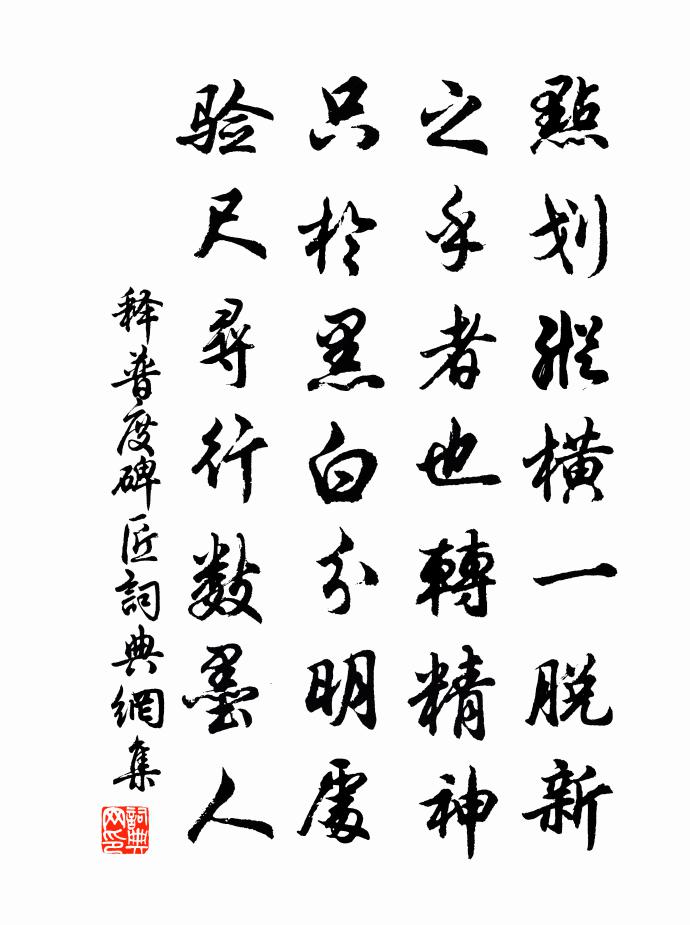 點划縱橫一脱新
之乎者也轉精神
只於黑白分明處
验尺尋行数墨人
释普度碑匠詞典網集
詞典网印